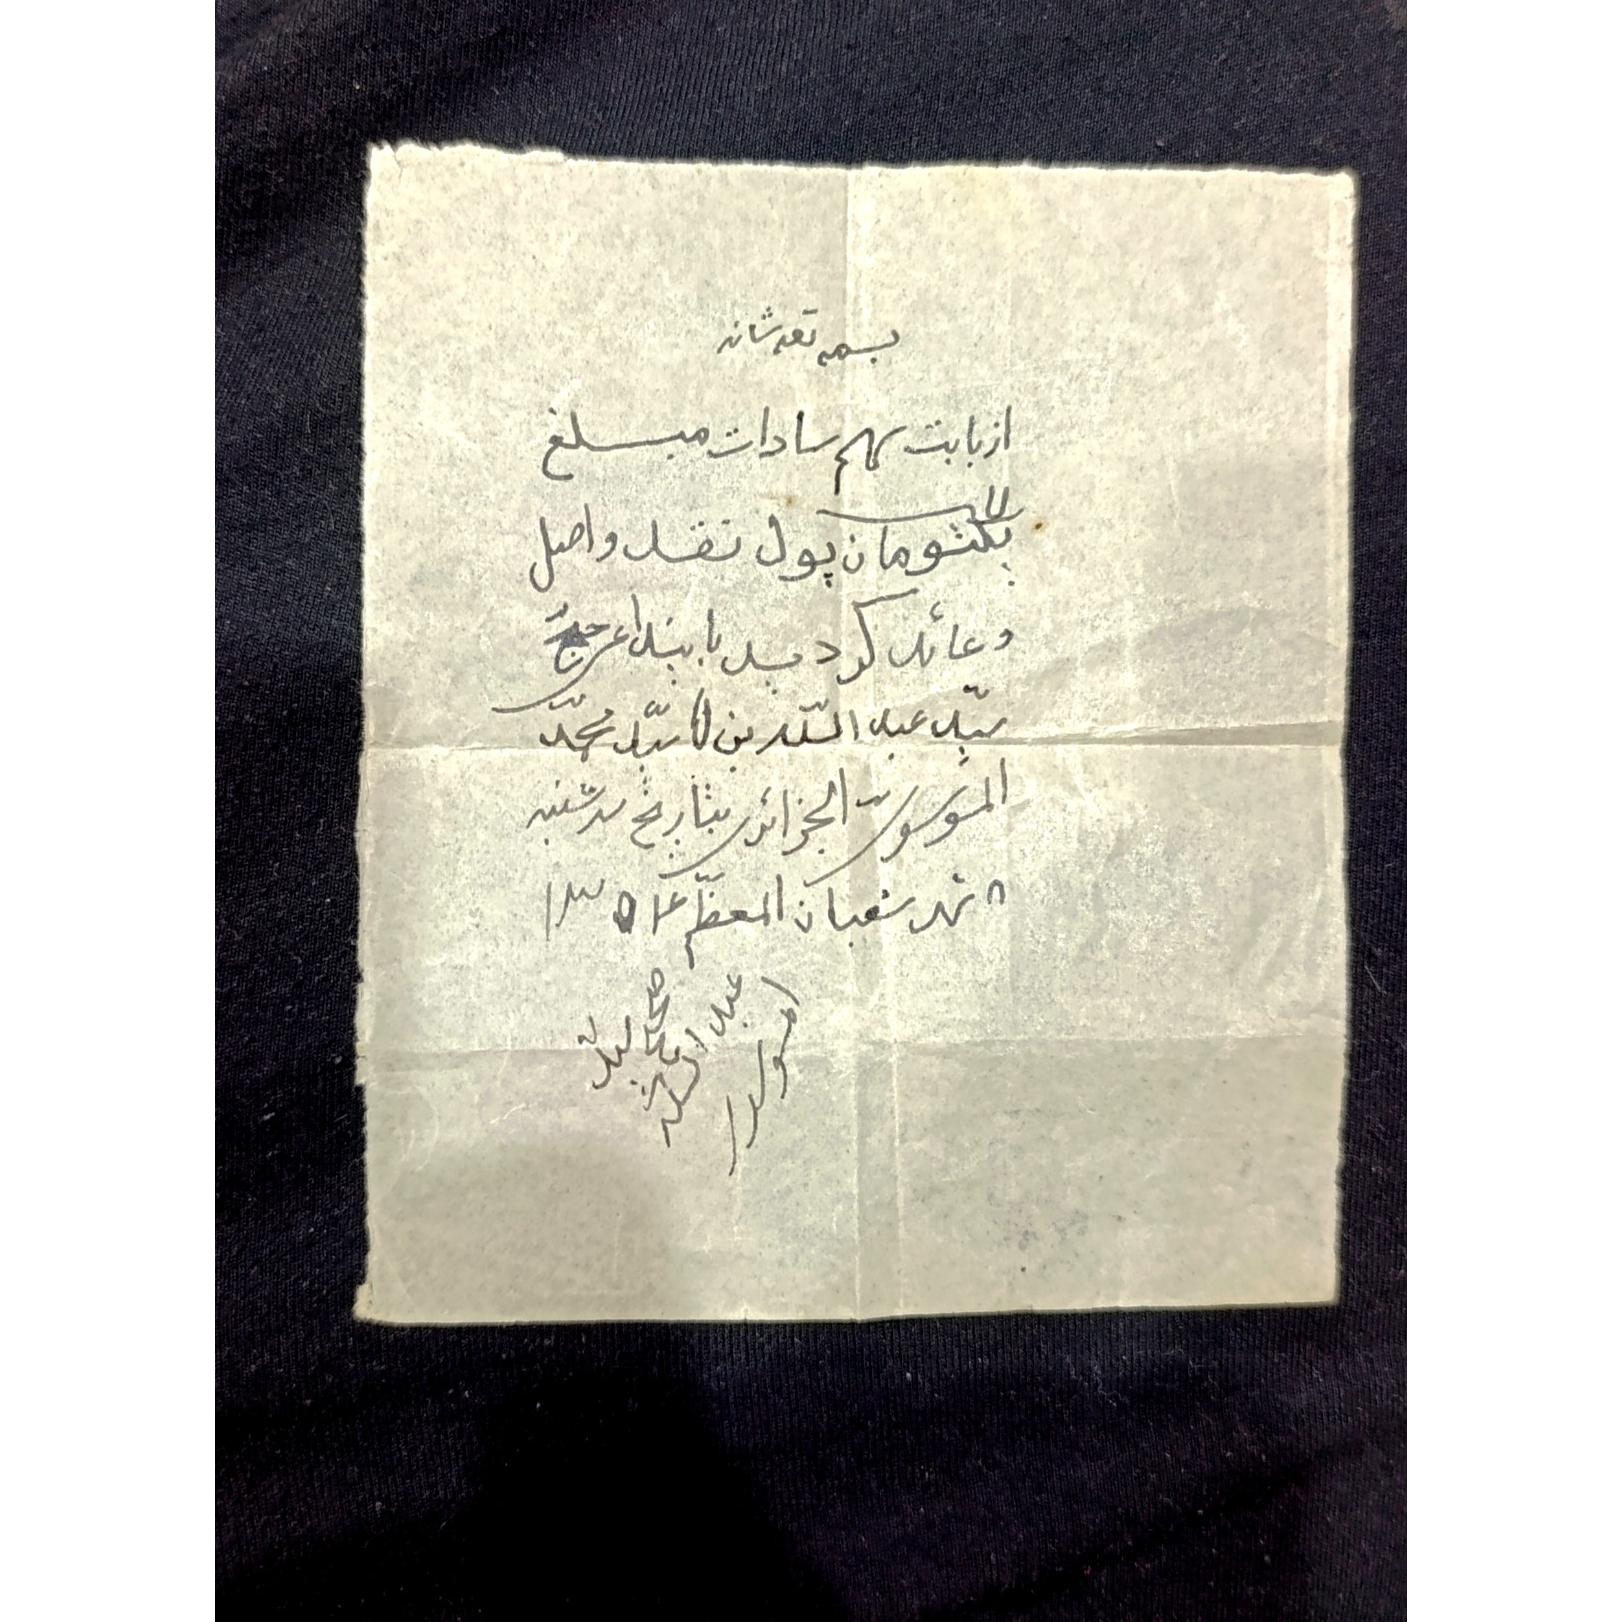 بسمه تعه شانه
از بابت سهم سادات مبلغ
یکتومان پول نقد واصل
و عائد گردید باینداعی
سید عبد الله بن سید محمد
الموسوی الجزائری بتاریخ سه شنبه
۸ شهر شعبان المعظم ۱۳۵۴
صحیح سید
عبد الله
الموسوی